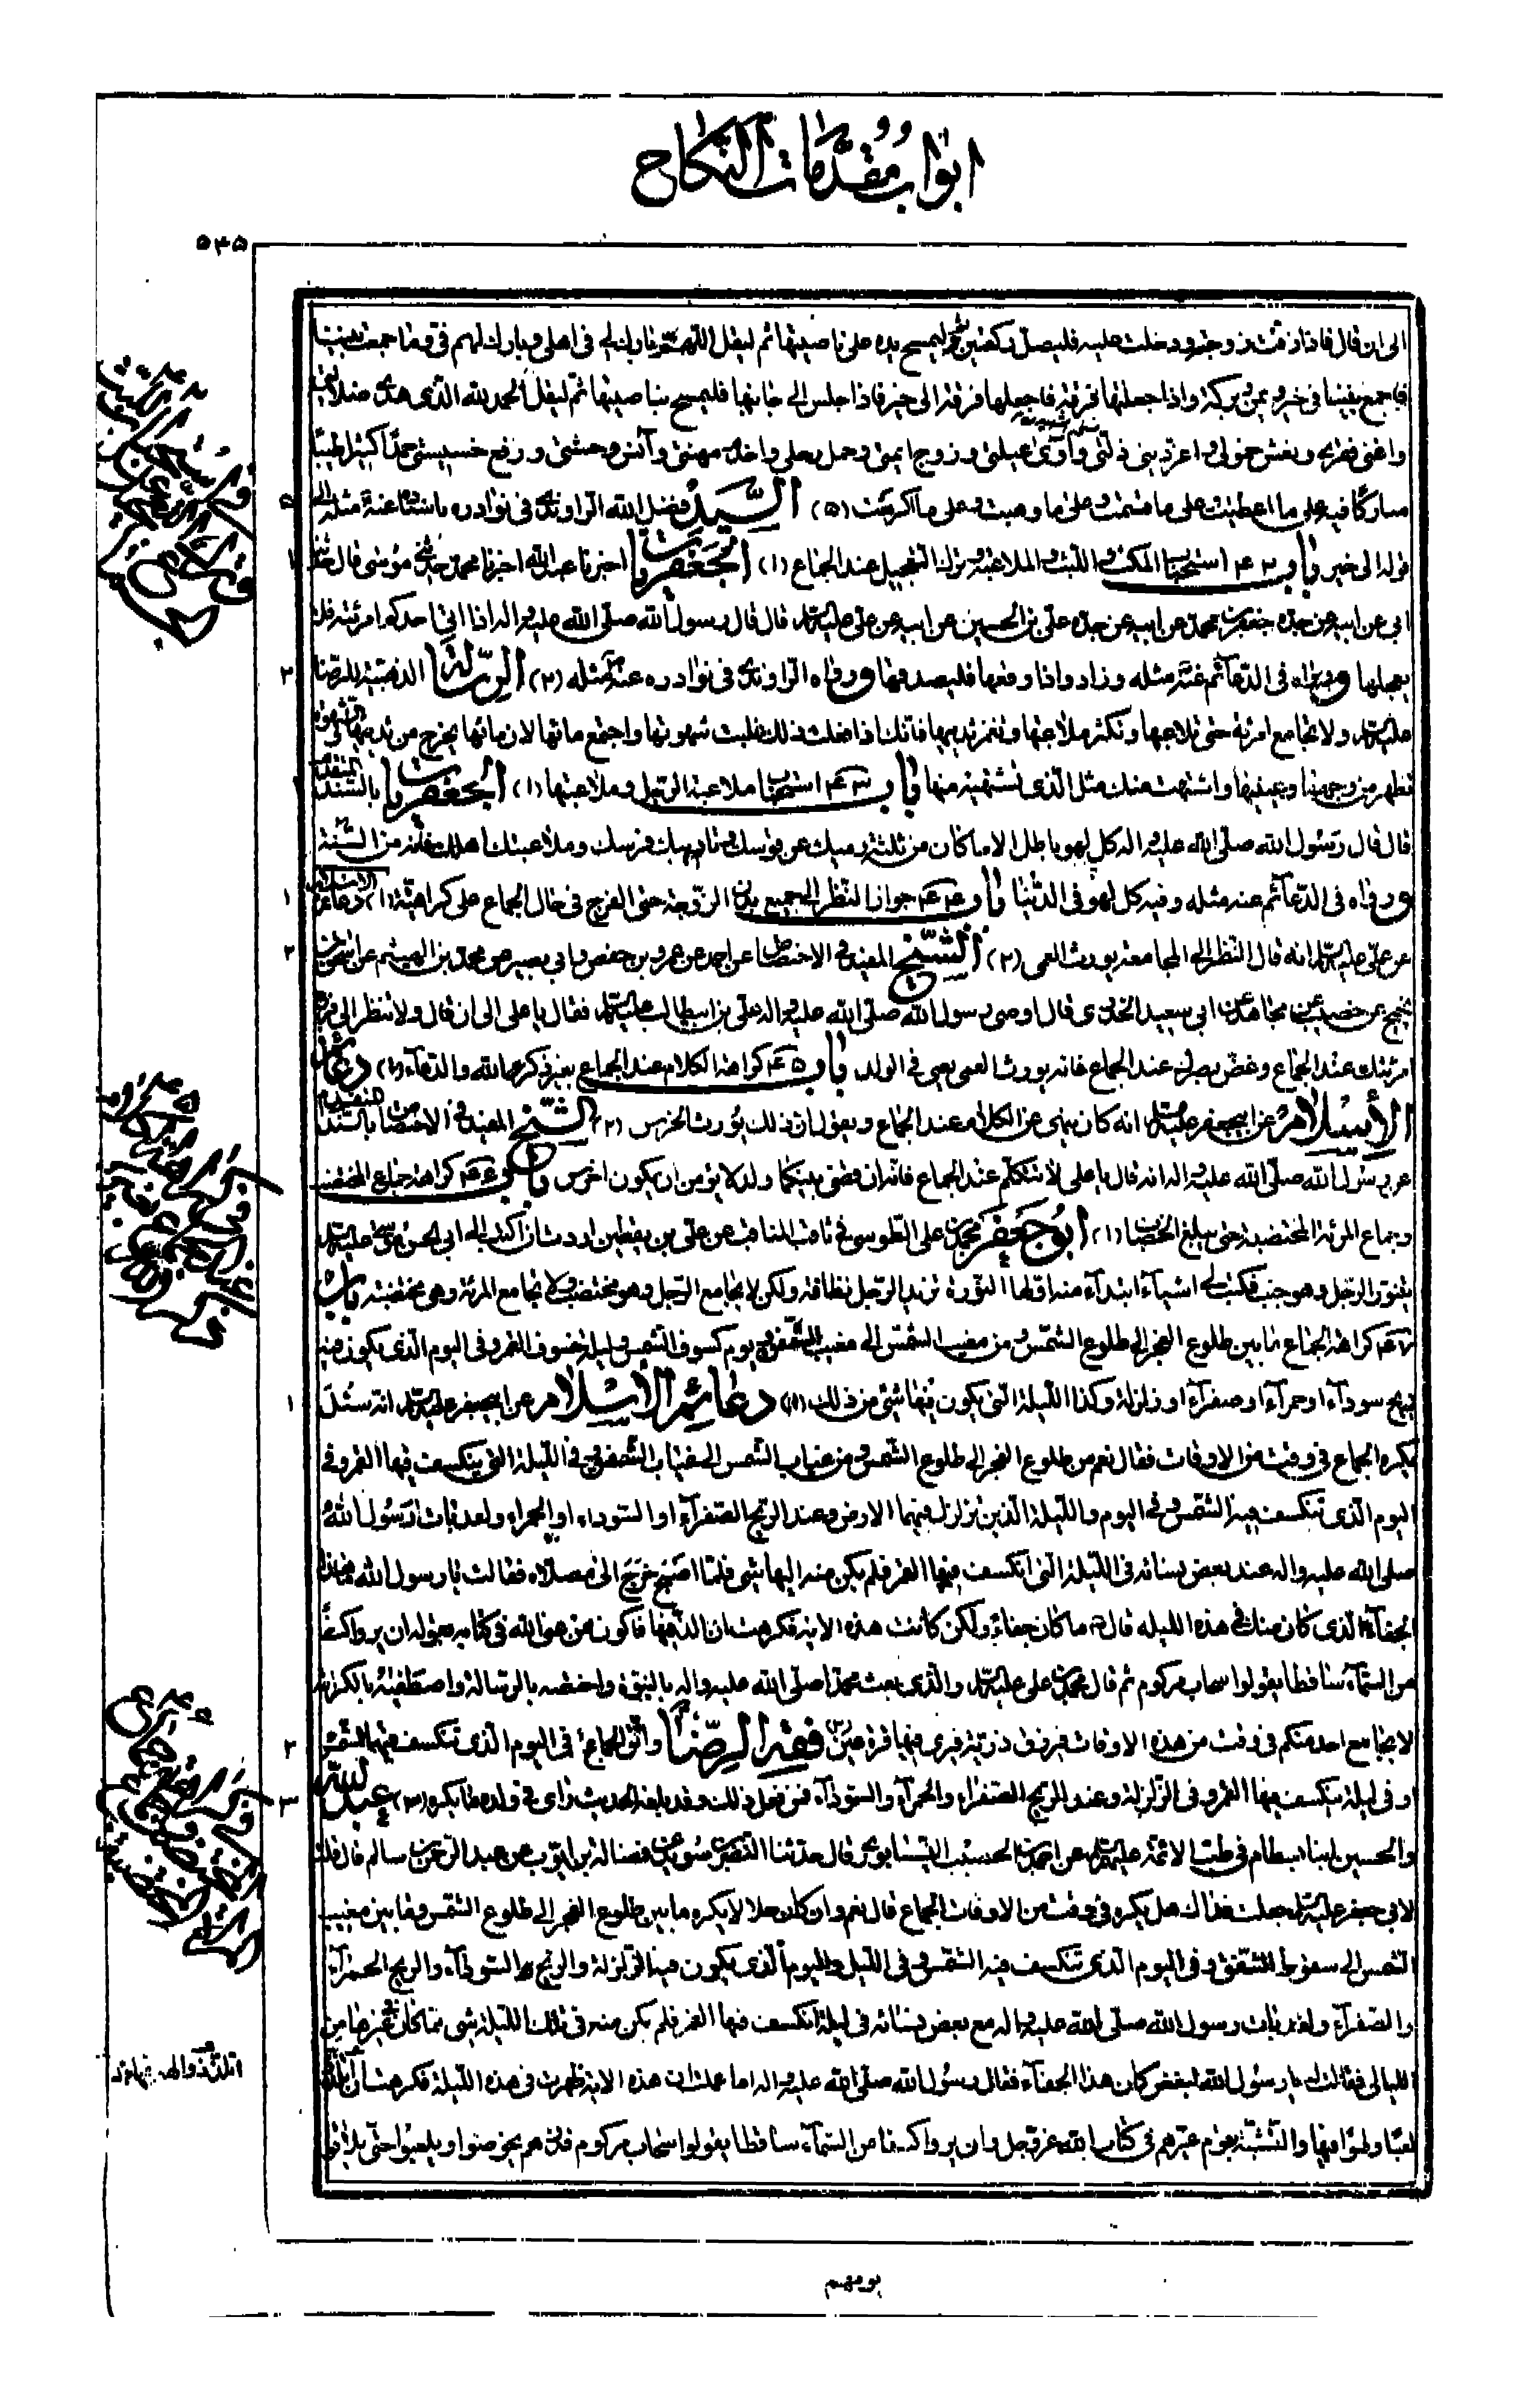 ابواب مقدّمات النكاح
٥٤٥
الى ان قال فاذا زفت زوجته ودخلت عليه فليصل ركعتين ثم ليمسح يده على ناصيتها ثم ليقل اللهم بارك لي في اهلي وبارك لهم في وما جمعت بيننا
فاجمع بيننا في خير ويمن وبركة واذا جعلتها فرقة فاجعلها فرقة الى خير فاذا جلس الى جانبها فليمسح بناصيتها ثم ليقل الحمد لله الذي هدى ضلالتي
واغنى فقري ونعش خمولي واعز ذلتي وآوى عيلتي وزوج ايمتي وحمل رحلي واخدم مهنتي وآنس وحشتي ورفع خسيستي حمدا كثيرا طيبا
مباركا فيه على ما اعطيت وعلى ما قسمت وعلى ما وهبت وعلى ما اكرمت (٥) السّيد فضل الله الراوندي في نوادره باسناده عنه مثله الى
قوله الى خير باب ٤٢ استحباب المكث واللبث والملاعبة وترك التعجيل عند الجماع (١) الجعفريات اخبرنا عبد الله اخبرنا محمد حدثني موسى قال حدثنا
ابي عن ابيه عن جده جعفر بن محمد عن ابيه عن جده علي بن الحسين عن ابيه عن علي عليه السلام قال قال رسول الله صلى الله عليه واله اذا اتى احدكم امرئته فلا
يعجلها ورواه في الدعائم عنه مثله وزاد واذا واقعها فليصدقها ورواه الراوندي في نوادره عنه مثله (٢) الرسالة الذهبية للرضا
عليه السلام ولا تجامع امرئة حتى تلاعبها وتكثر ملاعبتها وتغمز ثدييها فانك اذا فعلت ذلك غلبت شهوتها واجتمع مائها لان مائها يخرج من ثدييها والشهوة
تظهر من وجهها وعينيها واشتهت منك مثل الذي تشتهيه منها باب ٤٣ استحباب ملاعبة الرجل وملاعبتها (١) الجعفريات بالسند المتقدم
قال قال رسول الله صلى الله عليه واله كل لهو باطل الا ما كان من ثلثة رميك عن قوسك وتاديبك فرسك وملاعبتك اهلك فانه من السنة
ورواه في الدعائم عنه مثله وفيه كل لهو في الدنيا باب ٤٤ جواز النظر الى جميع بدن الزوجة حتى الفرج في حال الجماع على كراهية (١) دعائم الاسلام
عن علي عليه السلام انه قال النظر الى المجامعة يورث العمى (٢) الشّيخ المفيد في الاختصاص عن احمد عن عمرو بن حفص وابي بصير عن محمد بن الهيثم عن اسحق بن
نجيح عن خصيب عن مجاهد عن ابي سعيد الخدري قال اوصى رسول الله صلى الله عليه واله علي بن ابيطالب عليه السلام فقال يا علي الى ان قال ولا تنظر الى فرج
امرئتك عند الجماع وغض بصرك عند الجماع فانه يورث العمى يعني في الولد باب ٤٥ كراهة الكلام عند الجماع بغير ذكر الله والدعاء (١) دعائم
الأسلام عن ابيجعفر عليه السلام انه كان ينهى عن الكلام عند الجماع ويقول ان ذلك يورث الخرس (٢) الشّيخ المفيد في الاختصاص بالسند المتقدم
عن رسول الله صلى الله عليه واله انه قال يا علي لا تتكلم عند الجماع فانه ان قضى بينكما ولد لا يؤمن ان يكون اخرس باب ٤٦ كراهة جماع المختضب
وجماع المرئة المختضبة حتى يبلغ الخضاب (١) ابو جعفر محمد بن علي الطوسي في ثاقب المناقب عن علي بن يقطين اردت ان اكتب اليه ابي الحسن موسى عليه السلام
يتنور الرجل وهو جنب فكتب لي اشياء ابتداء منه اولها النورة تزيد الرجل نظافة ولكن لا يجامع الرجل وهو مختضب ولا تجامع المرئة وهي مختضبة باب
٤٧ كراهة الجماع ما بين طلوع الفجر الى طلوع الشمس ومن مغيب الشمس الى مغيب الشفق وفي يوم كسوف الشمس وليلة خسوف القمر وفي اليوم الذي يكون فيه
ريح سوداء او حمراء او صفراء او زلزلة وكذا الليلة التي يكون فيها شئ من ذلك (١) دعائم الأسلام عن ابيجعفر عليه السلام انه سئل
أيكره الجماع في وقت من الاوقات فقال نعم من طلوع الفجر الى طلوع الشمس ومن غياب الشمس الى غياب الشفق وفي الليلة التي ينكسف فيها القمر وفي
اليوم الذي تنكسف فيه الشمس وفي اليوم والليلة الذين تزلزل فيهما الارض وعند الريح الصفراء او السوداء او الحمراء ولقد بات رسول الله
صلى الله عليه واله عند بعض نسائه في الليلة التي انكسف فيها القمر فلم يكن منه اليها شئ فلما اصبح خرج الى مصلاه فقالت يا رسول الله ما هذا
الجفاء الذي كان منك في هذه الليلة قال ما كان جفاء ولكن كانت هذه الاية فكرهت ان الذ فيها فاكون ممن عنى الله في كتابه بقوله ان يروا كسفا
من السماء ساقطا يقولوا سحاب مركوم ثم قال محمد بن علي عليه السلام والذي بعث محمدا صلى الله عليه واله بالنبوة واختصه بالرسالة واصطفيه بالكرامة
لا يجامع احد منكم في وقت من هذه الاوقات فيرزق ذرية فيرى فيها قرة عين (٢) فقه الرّضا واتق الجماع في اليوم الذي تنكسف فيه الشمس
او في ليلة ينكسف فيها القمر وفي الزلزلة وعند الريح الصفراء والحمراء والسوداء فمن فعل ذلك وقد بلغه الحديث راى في ولده ما يكره (٣) عبد الله
والحسين ابنا بسطام في طب الائمة عليهم السلام عن احمد بن الحسيب النيسابوري قال حدثنا النضر بن سويد عن فضالة بن ايوب عن عبد الرحمن بن سالم قال قلت
لابي جعفر عليه السلام جعلت فداك هل يكره في وقت من الاوقات الجماع قال نعم وان كان حلالا يكره ما بين طلوع الفجر الى طلوع الشمس وما بين مغيب
الشمس الى سقوط الشفق وفي اليوم الذي تنكسف فيه الشمس وفي الليل واليوم الذي يكون فيه الزلزلة والريح السوداء والريح الحمراء
والصفراء ولقد بات رسول الله صلى الله عليه واله مع بعض نسائه في ليلة انكسف فيها القمر فلم يكن منه في تلك الليلة شئ مما كان في غيرها من
الليالي فقالت يا رسول الله لبغض كان هذا الجفاء فقال رسول الله صلى الله عليه واله اما علمت ان هذه الاية ظهرت في هذه الليلة فكرهت ان اتلذذ
لعبا ولهوا فيها والتشبه بقوم عيرهم في كتاب الله عز وجل وان يروا كسفا من السماء ساقطا يقولوا سحاب مركوم فذرهم يخوضوا ويلعبوا حتى يلاقوا
اتلذذ والهو فيها
يومهم